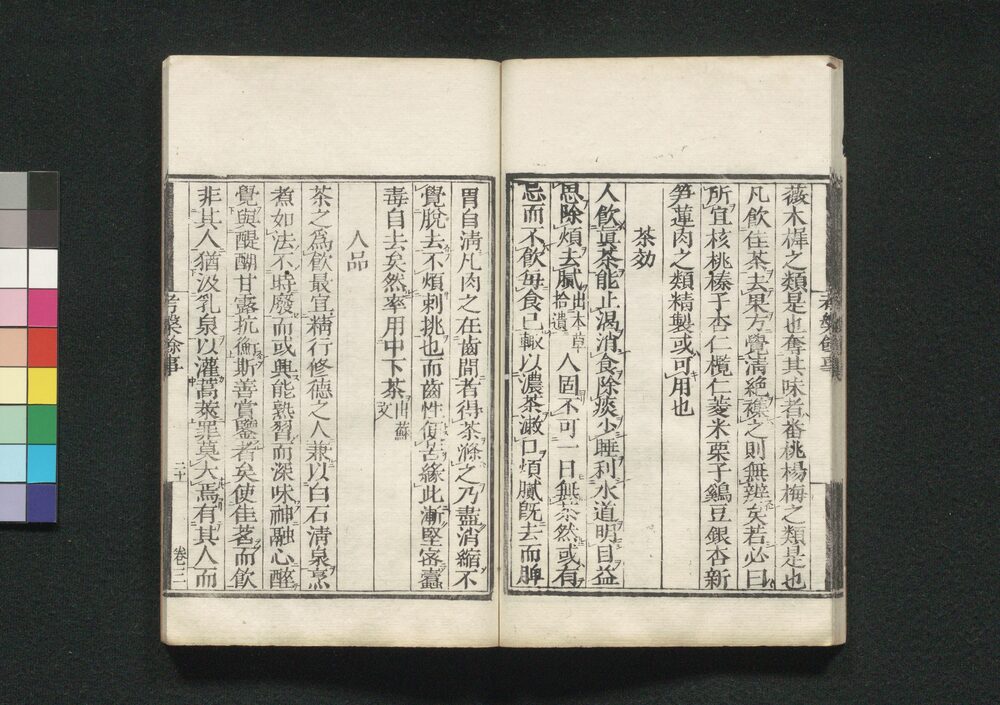 薇木樨之類是也奪其味者番桃楊梅之類是也
凡飲佳茶去果方覺清絶襍之則無辨矣若必曰
所宜核桃榛子杏仁欖仁菱米栗子鷄豆銀杏新
笋蓮肉之類精製或可用也
茶効
人飲眞茶能止渴消食除痰少睡利水道明目益
思除煩去膩出本草拾遺人固不可一日無茶然或有
忌而不飲毎食已輙以濃茶漱口煩膩既去而脾
胃自清凡肉之在齒間者得茶滌之乃盡消縮不
覺脫去不煩刺挑也而齒性便苦緣此漸堅密蠧
毒自去矣然率用中下茶出蘇文
人品
茶之爲飲最宜精行修德之人兼以白石清泉烹
煮如法不時廢而或興能熟習而深味神融心醉
覺與醍醐甘露抗衡斯善賞鑒者矣使佳茗而飲
非其人猶汲乳泉以灌蒿萊罪莫大焉有其人而
考槃餘事
二十
卷三